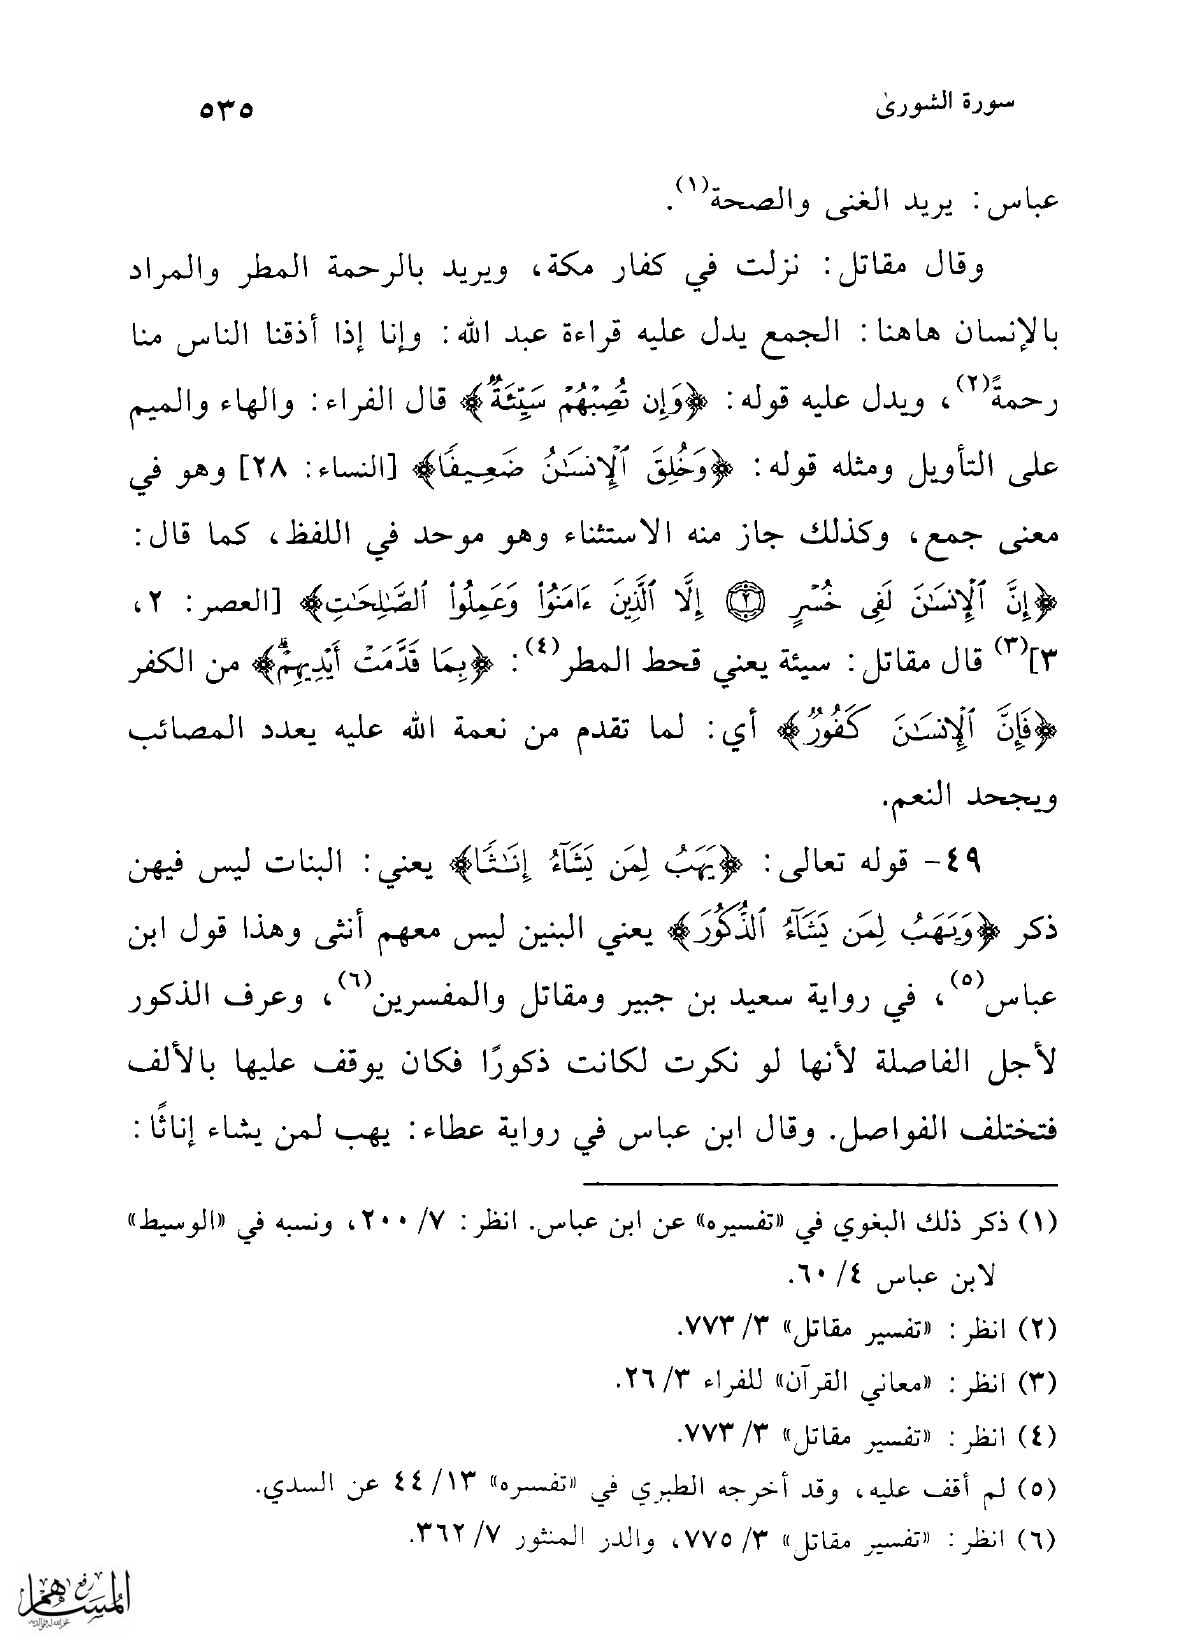 سورة الشورىٰ
٥٣٥
عباس: يريد الغنى والصحة(١).
وقال مقاتل: نزلت في كفار مكة، ويريد بالرحمة المطر والمراد
بالإنسان هاهنا: الجمع يدل عليه قراءة عبد الله: وإنا إذا أذقنا الناس منا
رحمةً(٢)، ويدل عليه قوله: ﴿وَإِن تُصِبۡهُمۡ سَيِّئَةٌۢ﴾ قال الفراء: والهاء والميم
على التأويل ومثله قوله: ﴿وَخُلِقَ ٱلۡإِنسَٰنُ ضَعِيفٗا﴾ [النساء: ٢٨] وهو في
معنى جمع، وكذلك جاز منه الاستثناء وهو موحد في اللفظ، كما قال:
﴿إِنَّ ٱلۡإِنسَٰنَ لَفِي خُسۡرٍ ۝٢ إِلَّا ٱلَّذِينَ ءَامَنُواْ وَعَمِلُواْ ٱلصَّٰلِحَٰتِ﴾ [العصر: ٢،
٣](٣) قال مقاتل: سيئة يعني قحط المطر(٤): ﴿بِمَا قَدَّمَتۡ أَيۡدِيهِمۡۗ﴾ من الكفر
﴿فَإِنَّ ٱلۡإِنسَٰنَ كَفُورٞ﴾ أي: لما تقدم من نعمة الله عليه يعدد المصائب
ويجحد النعم.
٤٩- قوله تعالى: ﴿يَهَبُ لِمَن يَشَآءُ إِنَٰثٗا﴾ يعني: البنات ليس فيهن
ذكر ﴿وَيَهَبُ لِمَن يَشَآءُ ٱلذُّكُورَ﴾ يعني البنين ليس معهم أنثى وهذا قول ابن
عباس(٥)، في رواية سعيد بن جبير ومقاتل والمفسرين(٦)، وعرف الذكور
لأجل الفاصلة لأنها لو نكرت لكانت ذكورًا فكان يوقف عليها بالألف
فتختلف الفواصل. وقال ابن عباس في رواية عطاء: يهب لمن يشاء إناثًا:
(١) ذكر ذلك البغوي في «تفسيره» عن ابن عباس. انظر: ٧/ ٢٠٠، ونسبه في «الوسيط»
لابن عباس ٤/ ٦٠.
(٢) انظر: «تفسير مقاتل» ٣/ ٧٧٣.
(٣) انظر: «معاني القرآن» للفراء ٣/ ٢٦.
(٤) انظر: «تفسير مقاتل» ٣/ ٧٧٣.
(٥) لم أقف عليه، وقد أخرجه الطبري في «تفسره» ١٣/ ٤٤ عن السدي.
(٦) انظر: «تفسير مقاتل» ٣/ ٧٧٥، والدر المنثور ٧/ ٣٦٢.